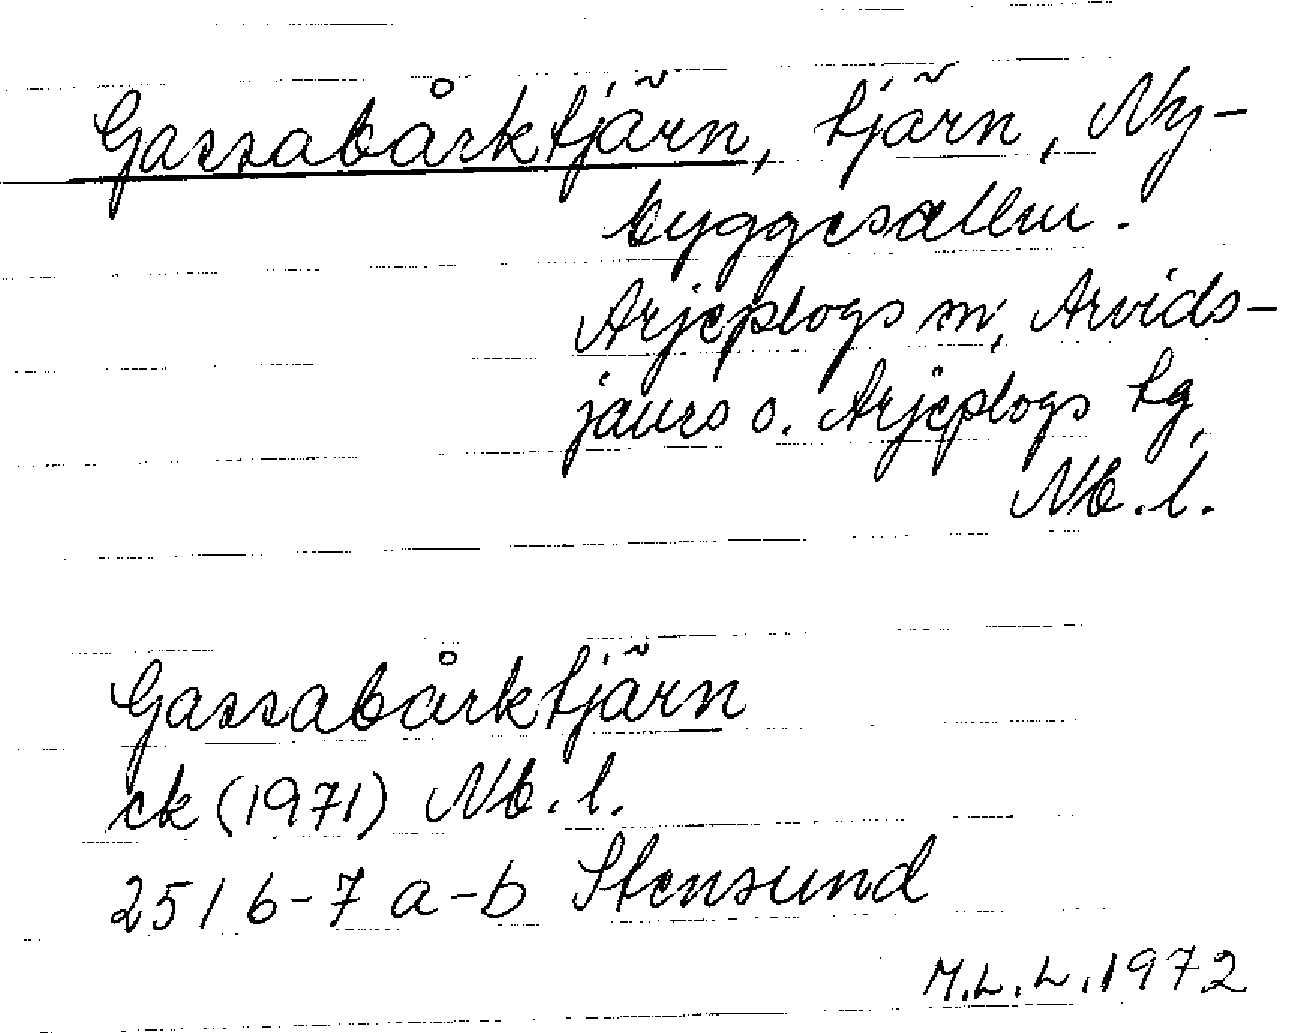 Gassabårktjärn, tjärn, Ny-
byggesallm.
Arjeplogs sn, Arvids-
jaurs o. Arjeplogs tg,
Nb. l.
Gassabårktjärn
ek (1971) Nb. l.
251 6-7 a-b Stensund
M.L.L. 1972